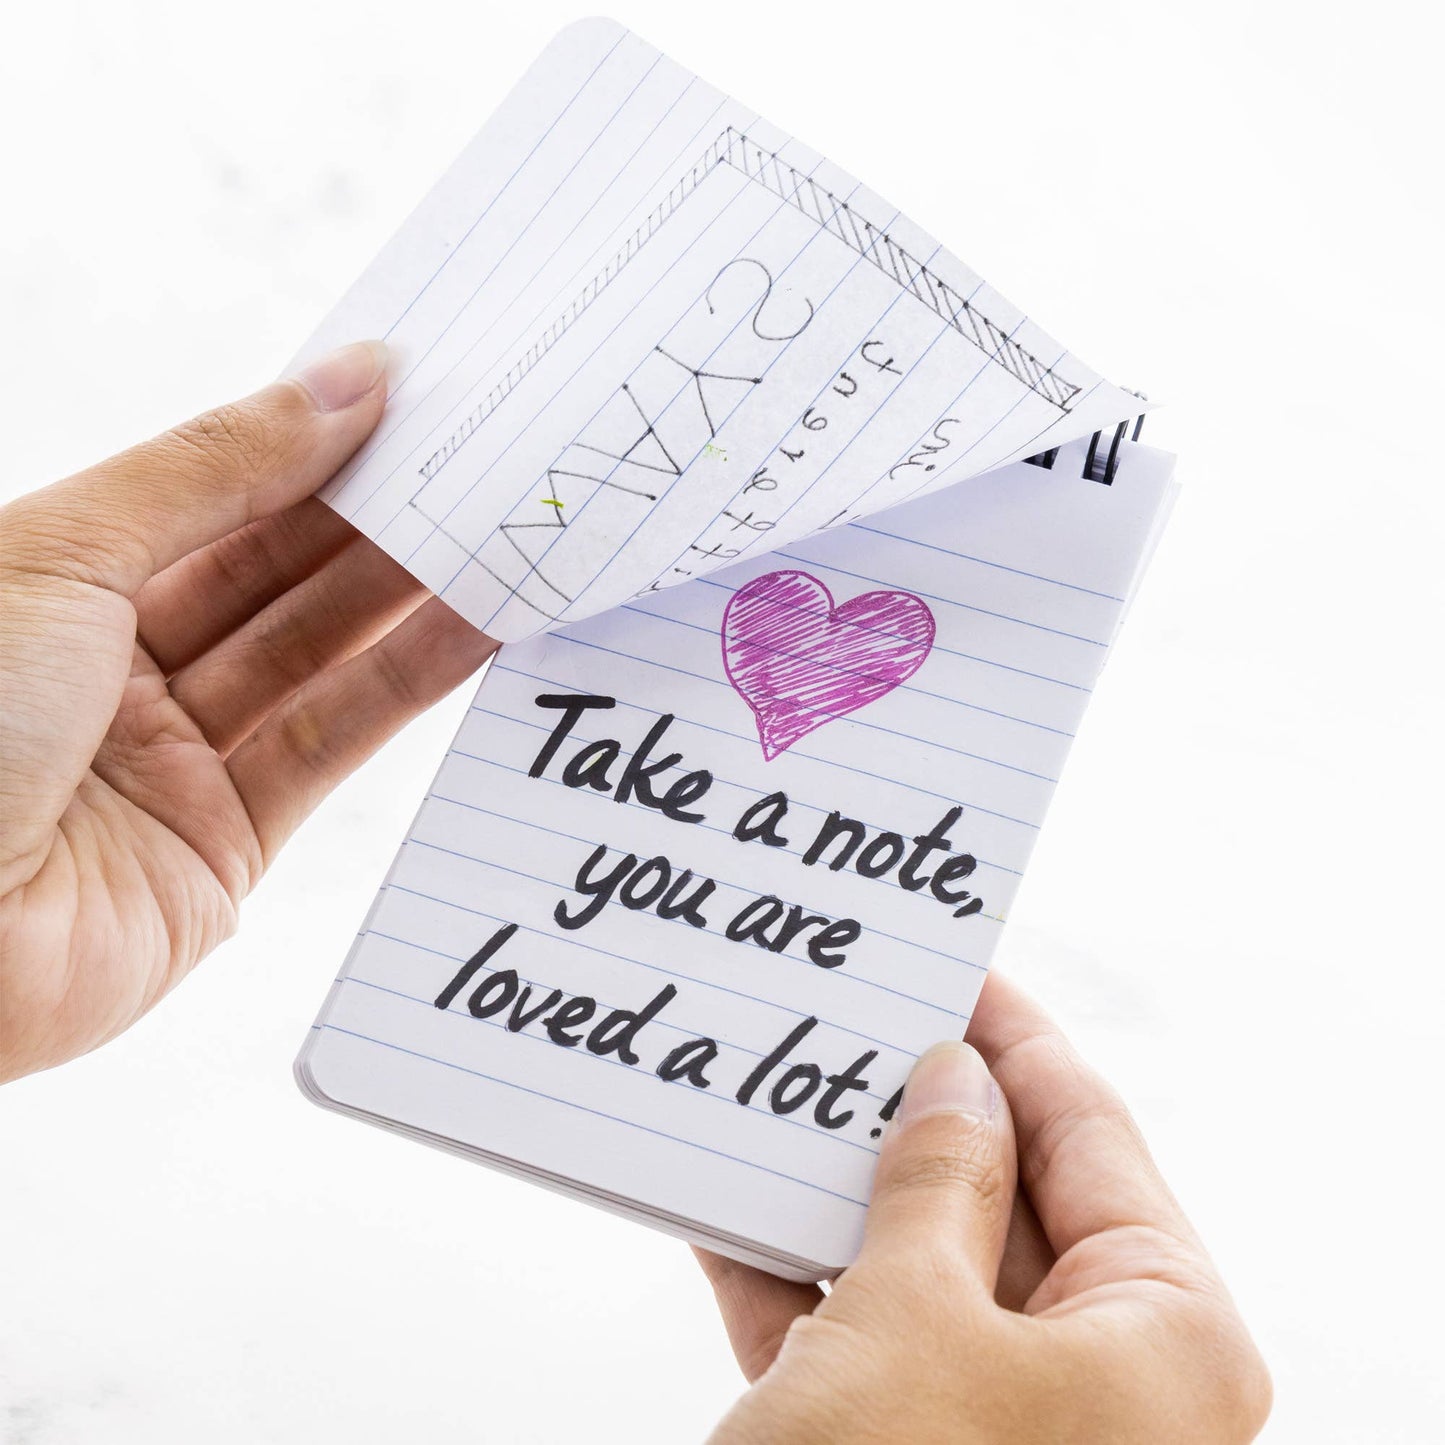 WAYS
Take a note,
you are
loved a lot!